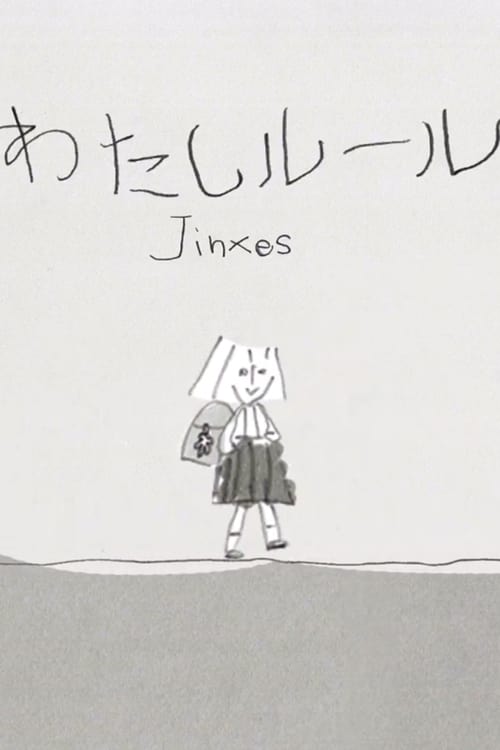 わたしルール
Jinxes